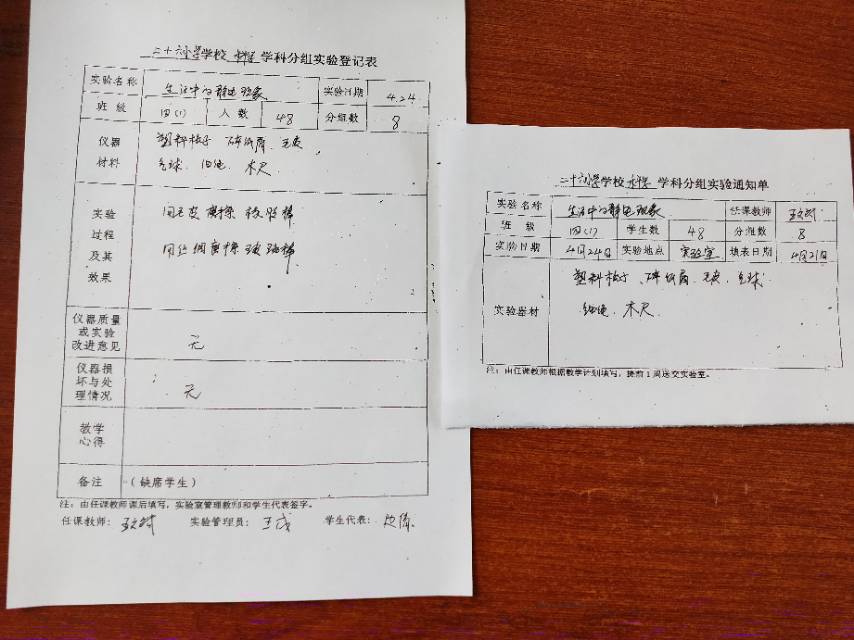 二十六小学学校 科学 学科分组实验登记表
实验名称 生活中的静电现象 实验日期 4.24
班 级 四(1) 人 数 48 分组数 8
仪器材料 塑料梳子 碎纸屑 毛皮
气球 细绳 木尺
实验过程及其效果 用毛皮摩擦 棒
用丝绸摩擦玻璃棒
仪器质量或实验改进意见 无
仪器损坏与处理情况 无
教学心得
备注 (缺席学生)
注：由任课教师课后填写，实验室管理教师和学生代表签字。
任课教师： 实验管理员： 王 学生代表：
二十六小学学校 科学 学科分组实验通知单
实验名称 生活中的静电现象 任课教师
班 级 四(1) 学生数 48 分组数 8
实验日期 4月24日 实验地点 实验室 填表日期 4月21日
实验器材 塑料梳子 碎纸屑 毛皮 气球
细绳 木尺
注：由任课教师根据教学计划填写，提前1周送交实验室。